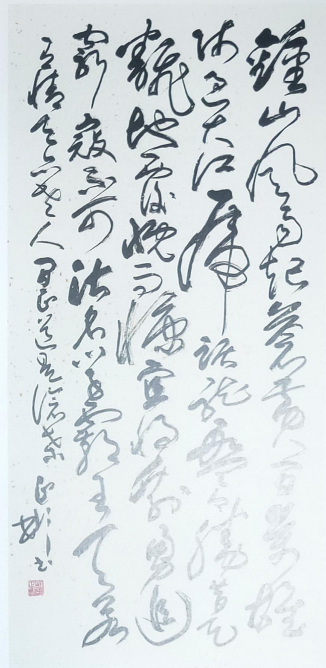 鍾山風雨起蒼黃百萬雄
師過大江虎踞龍盤今勝昔天
翻地覆慨而慷宜將剩勇追
窮寇不可沽名學霸王天若
有情天亦老人間正道是滄桑